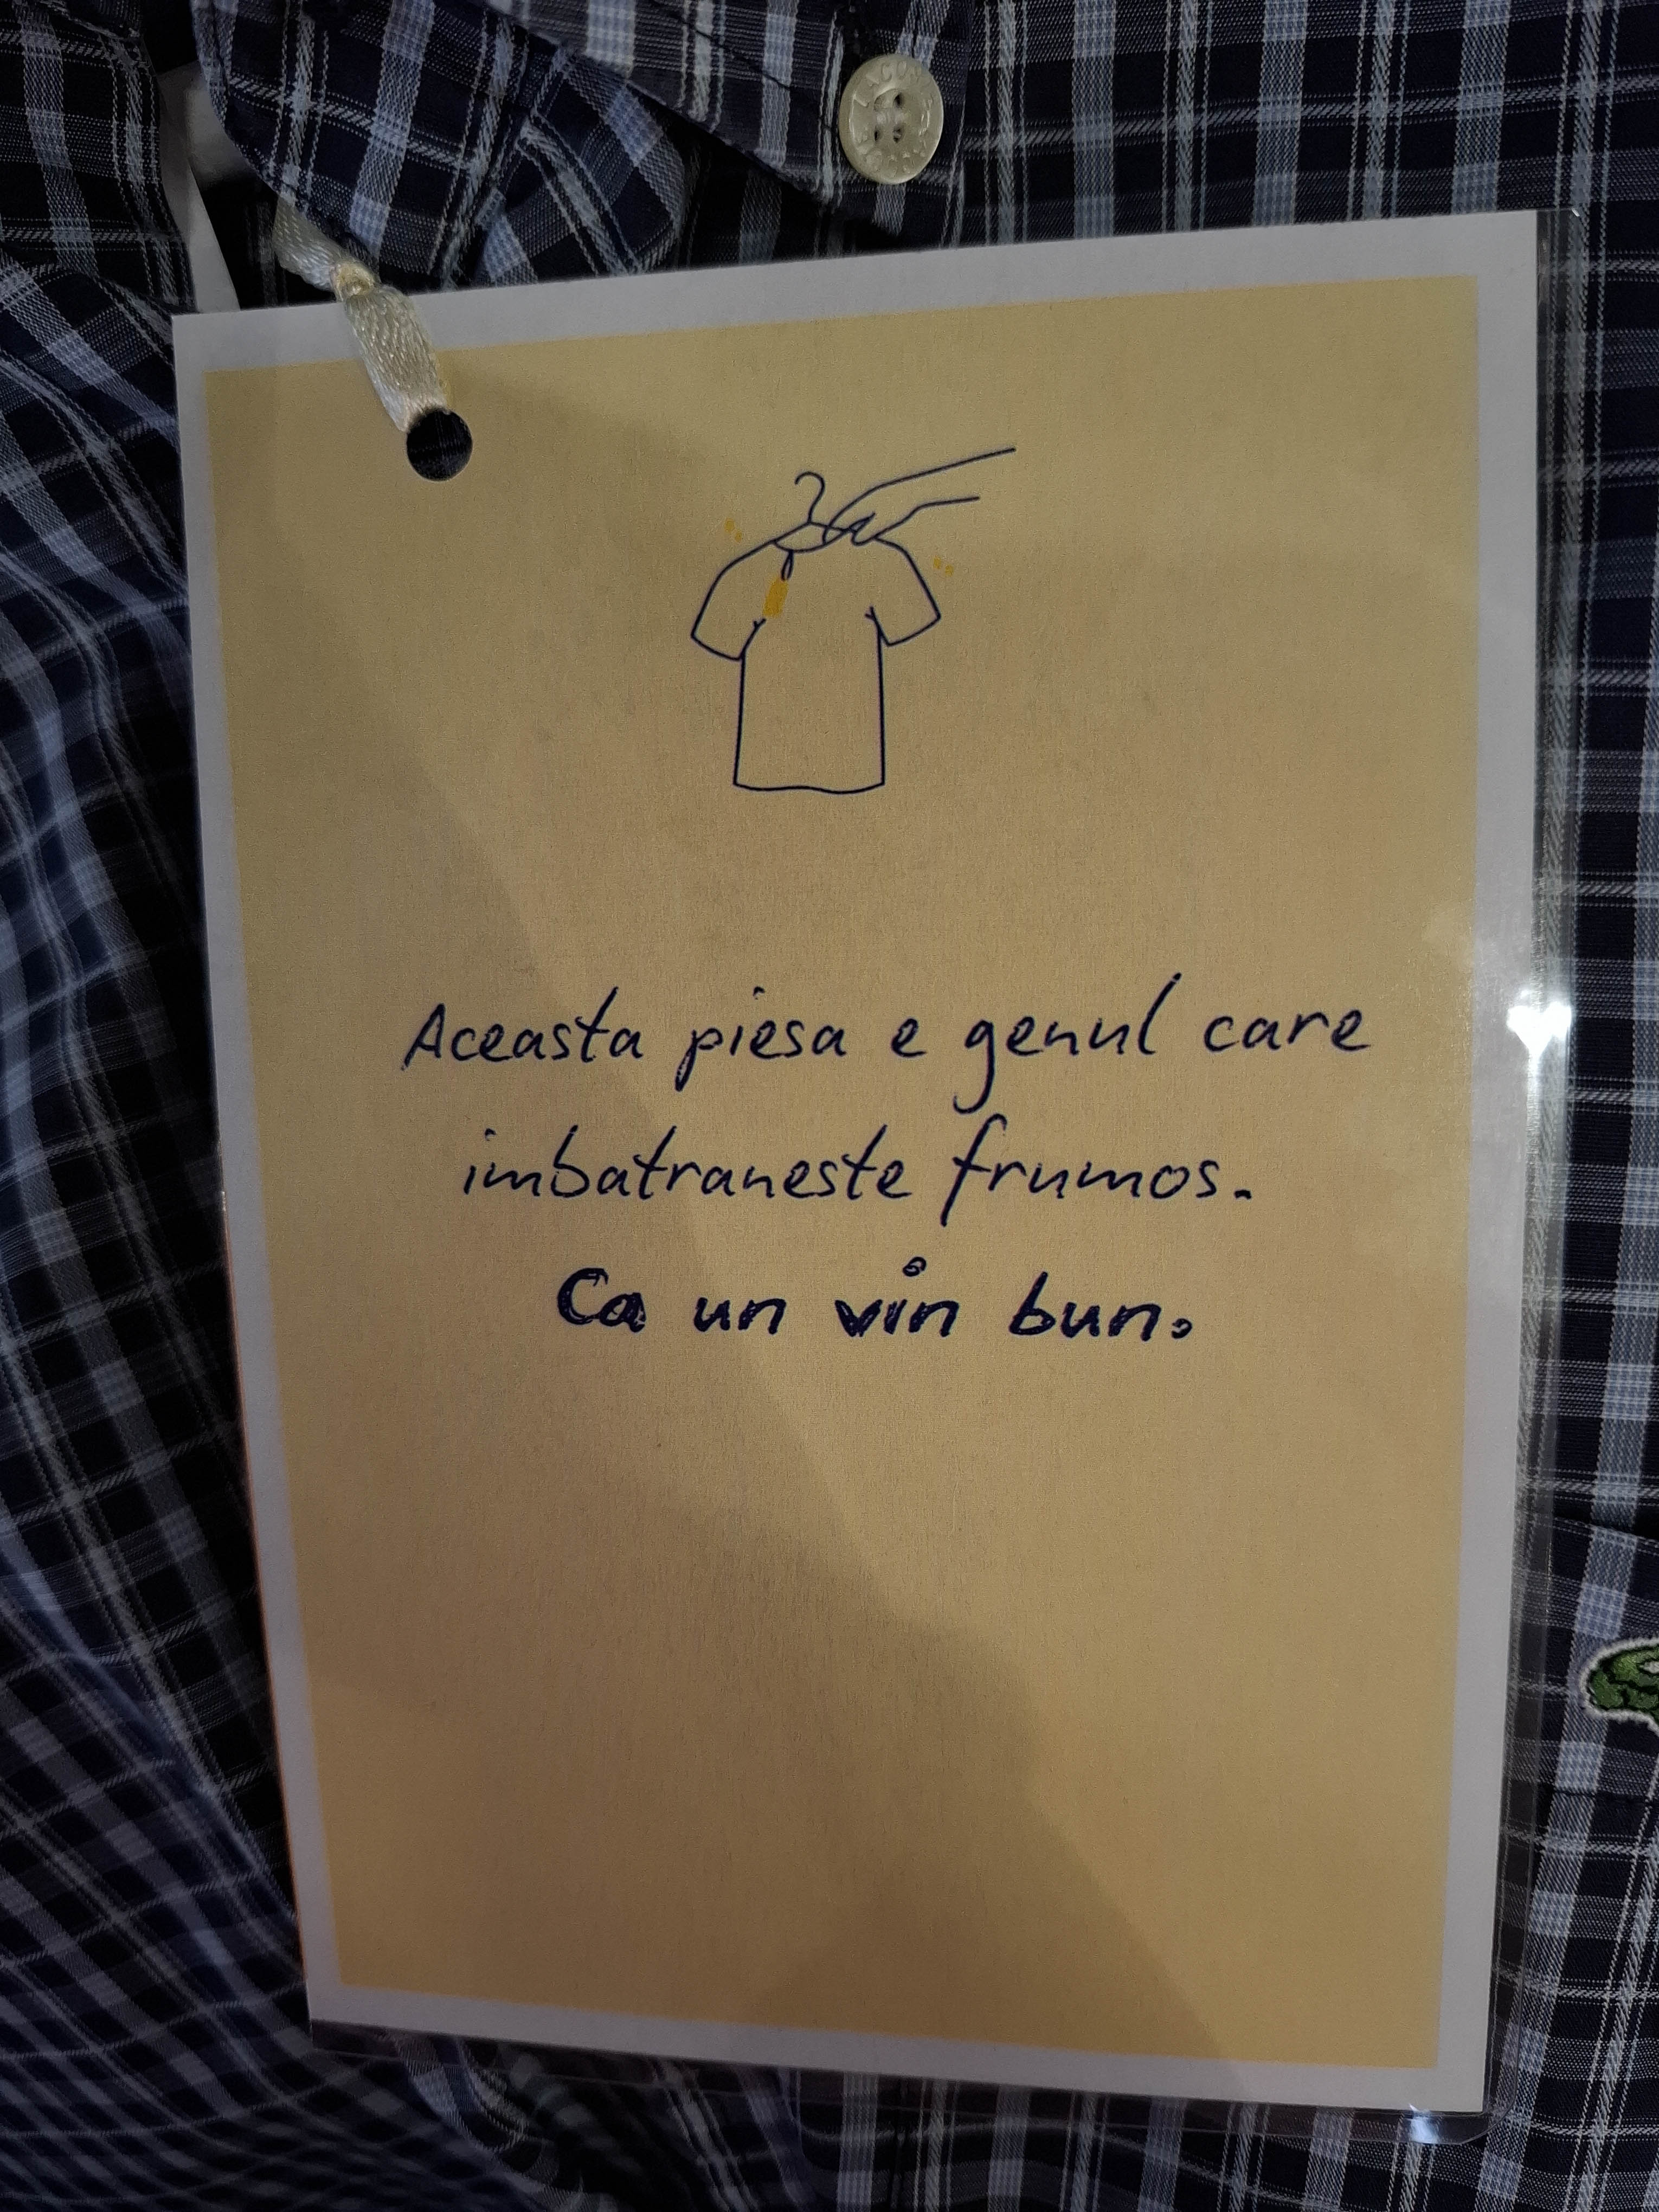 Aceasta piesa e genul care
imbatraneste frumos.
Ca un vin bun.